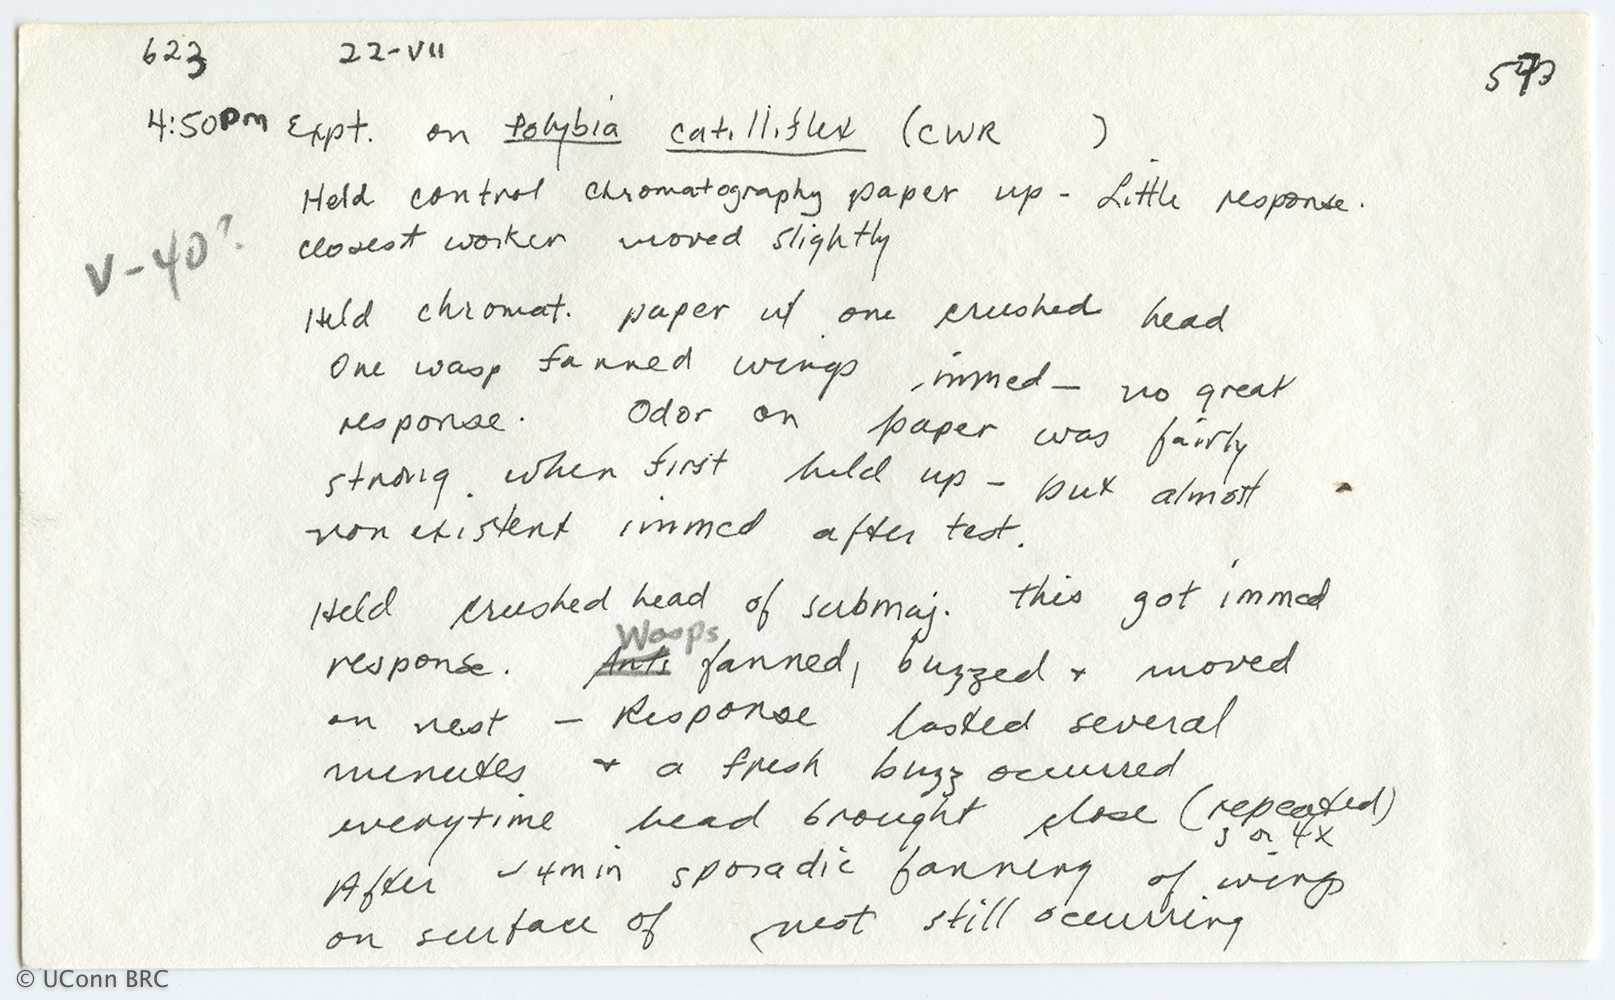 623 22-VII
4:50pm Expt. on Polybia catilliflex (CWR )
Held control chromatography paper up - Little response.
closest worker moved slightly
V-40?
Held chromat. paper w/ one crushed head
One wasp fanned wings immed - no great
response. Odor on paper was fairly
strong when first held up - but almost
non existent immed after test.
Held crushed head of submaj. This got immed
response. Ants Wasps fanned, buzzed + moved
on nest - Response lasted several
minutes + a fresh buzz occurred
everytime head brought close (repeated)
3 or 4x
After ~4min sporadic fanning of wings
on surface of nest still ocurring
© UConn BRC